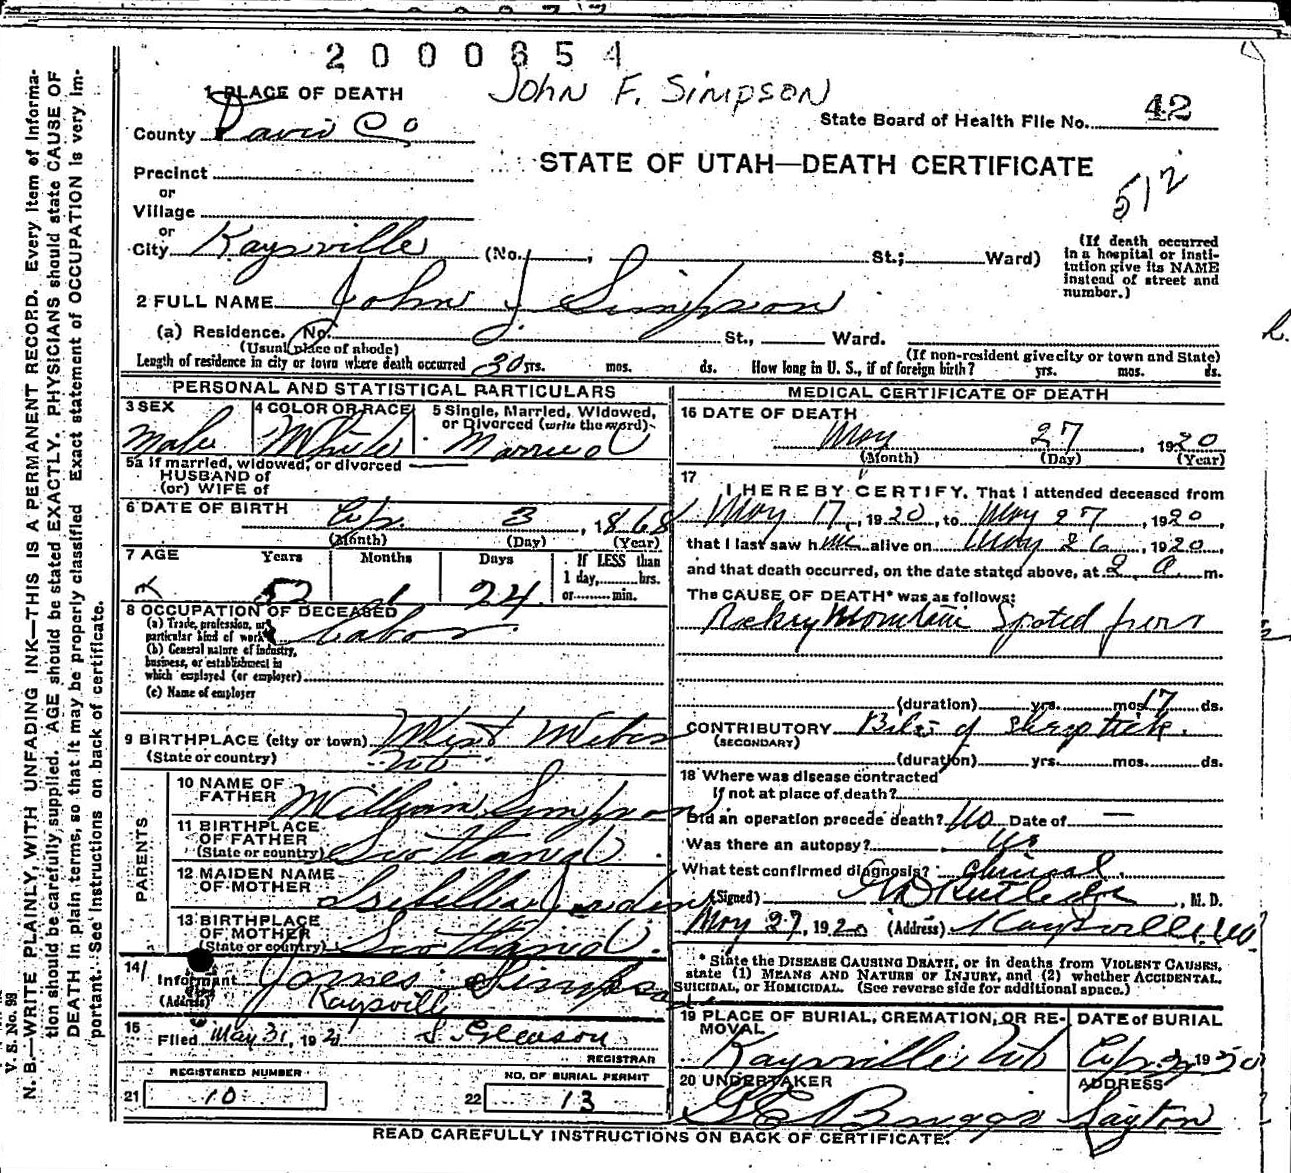 2000854
John F. Simpson
1 PLACE OF DEATH
State Board of Health File No. 42
County Davis Co
STATE OF UTAH—DEATH CERTIFICATE
512
Precinct
or
Village
or
City Kaysville (No. , St.; Ward)
(If death occurred in a hospital or institution give its NAME instead of street and number.)
2 FULL NAME John J Simpson
(a) Residence. No. St., Ward.
(Usual place of abode) (If non-resident give city or town and State)
Length of residence in city or town where death occurred 30 yrs. mos. ds. How long in U. S., if of foreign birth? yrs. mos. ds.
PERSONAL AND STATISTICAL PARTICULARS
3 SEX 4 COLOR OR RACE 5 Single, Married, Widowed, or Divorced (write the word)
Male White Married
5a If married, widowed, or divorced
HUSBAND of
(or) WIFE of
6 DATE OF BIRTH Ap. 3, 1868
(Month) (Day) (Year)
7 AGE Years Months Days If LESS than 1 day, hrs. or min.
52 1 24
8 OCCUPATION OF DECEASED
(a) Trade, profession, or particular kind of work Labor
(b) General nature of industry, business, or establishment in which employed (or employer)
(c) Name of employer
9 BIRTHPLACE (city or town) West Weber
(State or country)
PARENTS
10 NAME OF FATHER William Simpson
11 BIRTHPLACE OF FATHER (State or country) Scotland
12 MAIDEN NAME OF MOTHER Isibellia Jardin
13 BIRTHPLACE OF MOTHER (State or country) Scotland
14 Informant James Simpson
(Address) Kaysville
15 Filed May 31, 192 S. Gleason
REGISTRAR
REGISTERED NUMBER NO. OF BURIAL PERMIT
21 10 22 13
MEDICAL CERTIFICATE OF DEATH
16 DATE OF DEATH
May 27 1920
(Month) (Day) (Year)
17 I HEREBY CERTIFY, That I attended deceased from
May 17, 1920, to May 27, 1920,
that I last saw him alive on May 26, 1920,
and that death occurred, on the date stated above, at 2 a m.
The CAUSE OF DEATH* was as follows:
Rockey Mountain Spoted fever
(duration) yrs. mos. 17 ds.
CONTRIBUTORY Bite of sheep tick.
(SECONDARY)
(duration) yrs. mos. ds.
18 Where was disease contracted
If not at place of death?
Did an operation precede death? No Date of —
Was there an autopsy? No
What test confirmed diagnosis? Clinical
(Signed) Rutledge, M. D.
May 27, 1920 (Address) Kaysville
* State the DISEASE CAUSING DEATH, or in deaths from VIOLENT CAUSES,
state (1) MEANS AND NATURE OF INJURY, and (2) whether ACCIDENTAL,
SUICIDAL, or HOMICIDAL. (See reverse side for additional space.)
19 PLACE OF BURIAL, CREMATION, OR REMOVAL DATE of BURIAL
Kaysville Utah
20 UNDERTAKER ADDRESS
G E Briggs Layton
READ CAREFULLY INSTRUCTIONS ON BACK OF CERTIFICATE.
V. S. No. 99
N. B.—WRITE PLAINLY, WITH UNFADING INK—THIS IS A PERMANENT RECORD. Every item of Informa-
tion should be carefully supplied. AGE should be stated EXACTLY. PHYSICIANS should state CAUSE OF
DEATH in plain terms, so that it may be properly classified. Exact statement of OCCUPATION is very im-
portant. See instructions on back of certificate.